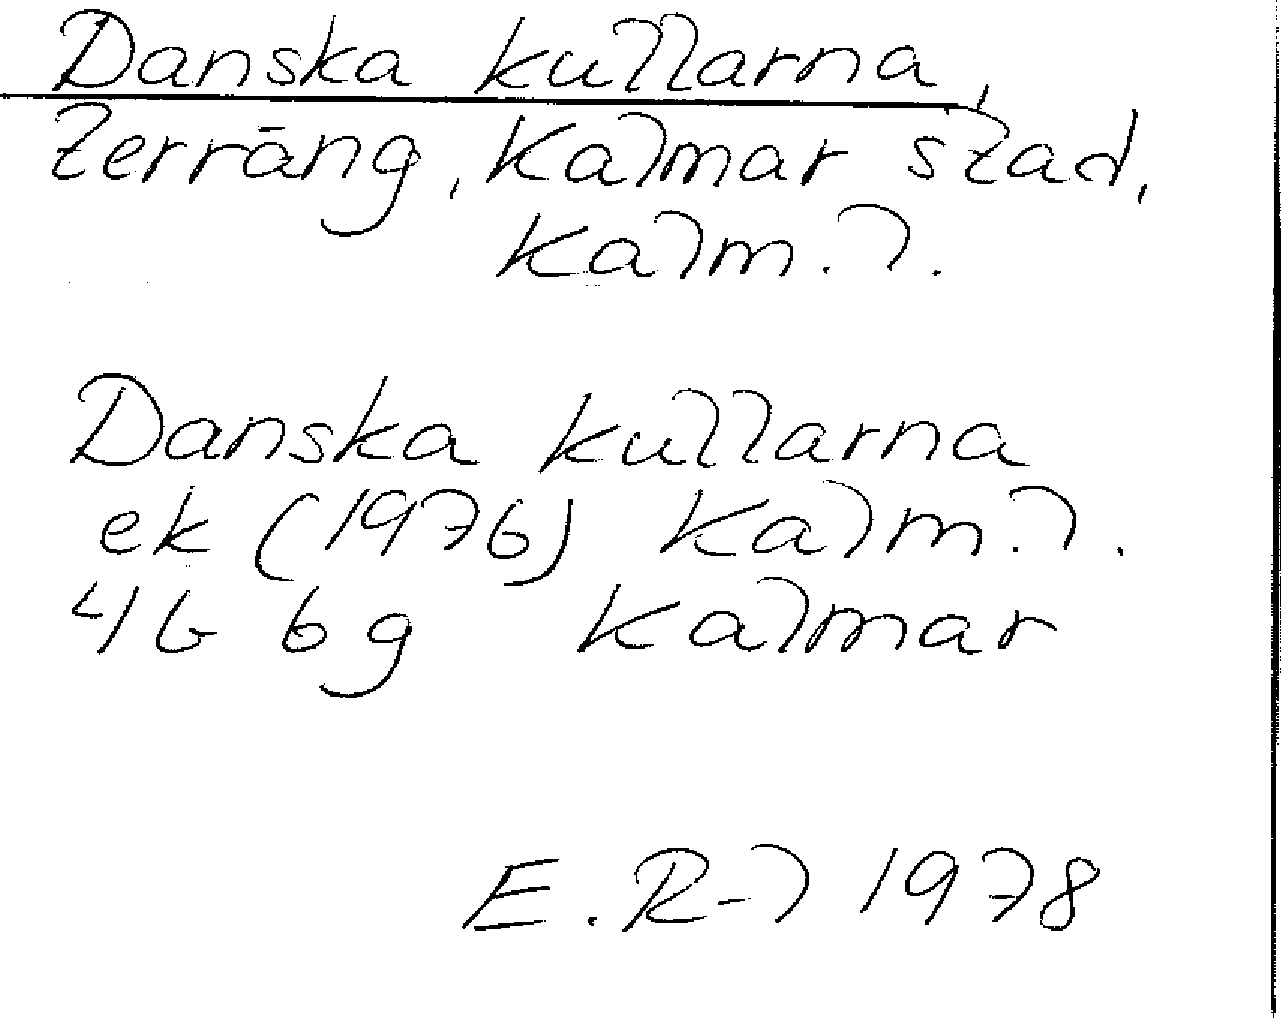 Danska kullarna,
terräng, Kalmar stad,
Kalm. l.
Danska kullarna
ek (1976) Kalm. l.
4G 6g Kalmar
E. R-l 1978